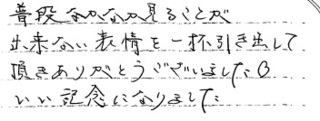 普段なかなか見ることが
出来ない表情を一杯引き出して
頂きありがとうございました。
いい記念になりました。